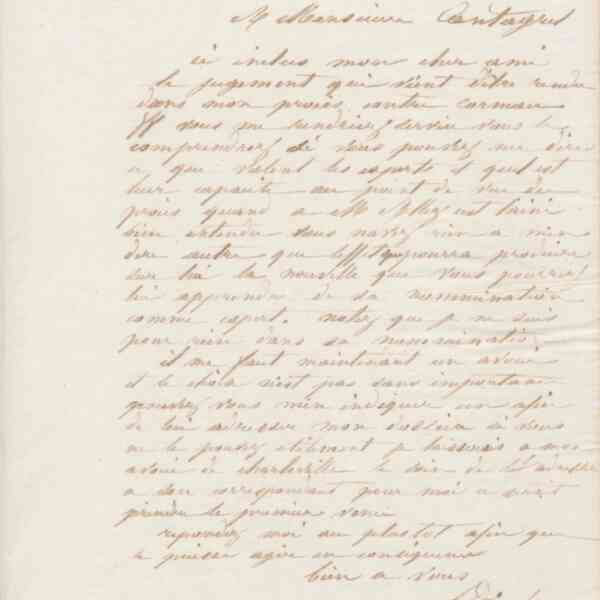 Monsieur Cantagrel
ci inclus mon cher ami
le jugement qui vient d'être rendu
dans mon procès contre
vous me rendriez service vous le
comprenez si vous pouvez me dire
ce que valent les experts et quel est
leur capacité au point de vue du
procès quand a Mr il est bien
bien entendu vous navez rien a
dire autre que leffet que pourra produire
sur lui la nouvelle que vous pourrez
lui apprendre de sa nommination
comme expert. notez que je ne suis
pour rien dans sa nommination.
il me faut maintenant un avoué
et le choix n'est pas sans importance
pouvez vous men indiquer un afin
de lui adresser mon dossier si vous
ne le pouvez utilement je laisserais a mon
avoué de charleville le soin de l'adresser
a son correspondant pour moi ce serait
prendre le premier venu
repondez moi au plustot afin que
je puisse agir en consequence
bien a vous